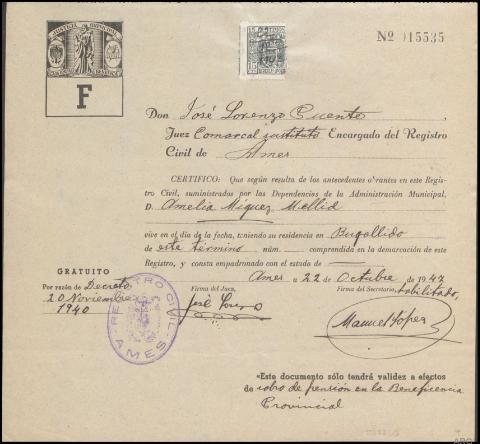 JUSTICIA MUNICIPAL
F
Nº 015535
Don José Lorenzo Puente
Juez Comarcal sustituto Encargado del Registro
Civil de Ames
CERTIFICO: Que según resulta de los antecedentes obrantes en este Regis-
tro Civil, suministrados por las Dependencias de la Administración Municipal,
D. Amelia Miguez Mellid
vive en el día de la fecha, teniendo su residencia en Bugallido
de este término núm. comprendida en la demarcación de este
Registro, y consta empadronado con el estado de
Ames a 22 de Octubre de 1947
GRATUITO
Por razón de Decreto
20 Noviembre
1940
Firma del Juez,
José Lorenzo
Firma del Secretario, habilitado,
Manuel López
REGISTRO CIVIL
AMES
«Este documento sólo tendrá validez a efectos
de cobro de pensión en la Beneficencia
Provincial